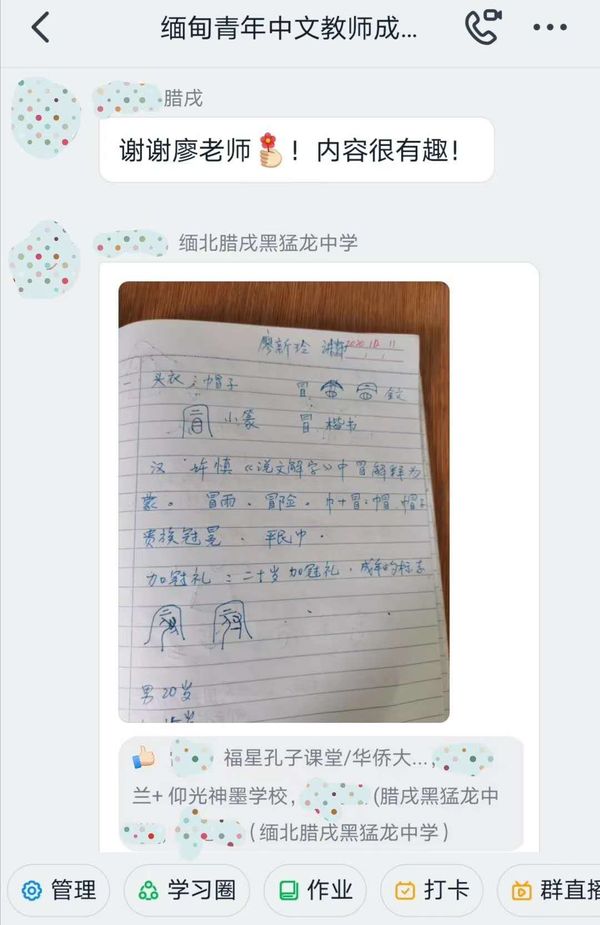 缅甸青年中文教师成...
腊戌
谢谢廖老师！内容很有趣！
缅北腊戌黑猛龙中学
廖新玲 2020.10.11
一 头衣：帽子 冒
小篆 冒 楷书
汉 许慎《说文解字》中冒解释为
蒙。 冒雨、冒险。巾+冒：帽 帽子
贵族冠冕、平民巾．
加冠礼：二十岁加冠礼．成年的标志
男20岁
15岁
福星孔子课堂/华侨大...,
兰+仰光神墨学校,(腊戌黑猛龙中
(缅北腊戌黑猛龙中学)
管理 学习圈 作业 打卡 群直播